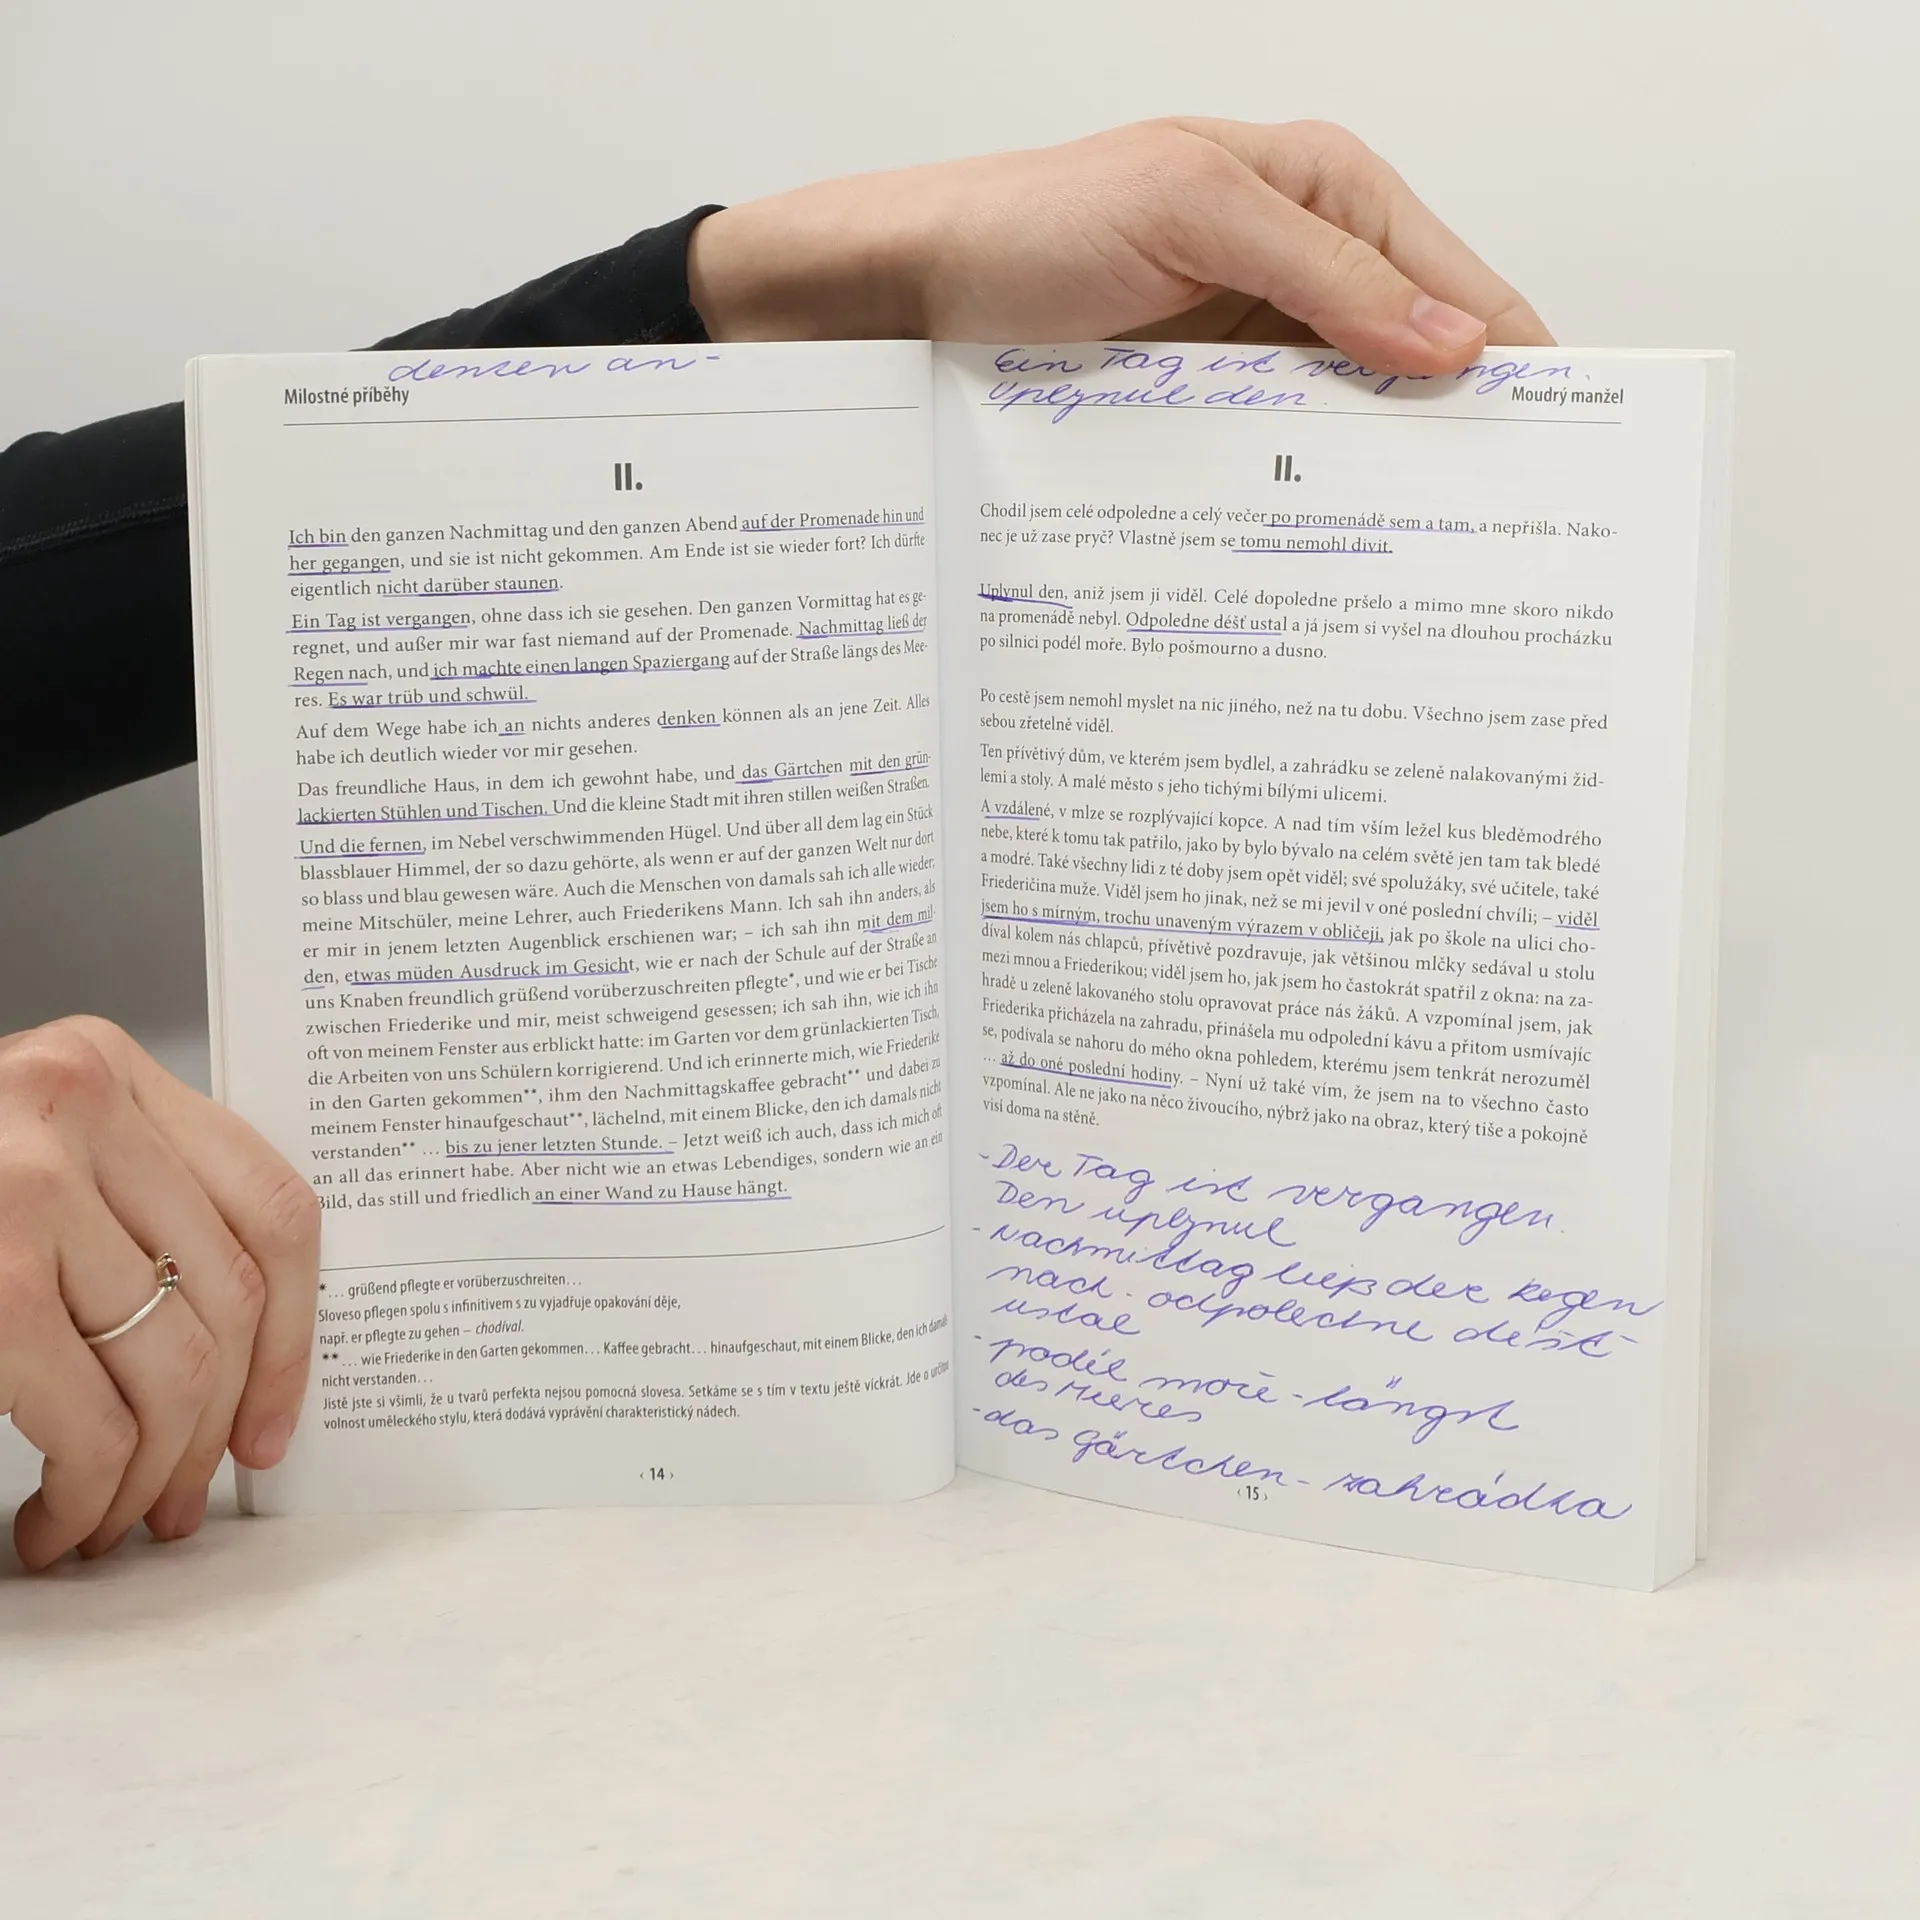 denken an-
Milostné příběhy
II.
Ich bin den ganzen Nachmittag und den ganzen Abend auf der Promenade hin und
her gegangen, und sie ist nicht gekommen. Am Ende ist sie wieder fort? Ich dürfte
eigentlich nicht darüber staunen.
Ein Tag ist vergangen, ohne dass ich sie gesehen. Den ganzen Vormittag hat es ge-
regnet, und außer mir war fast niemand auf der Promenade. Nachmittag ließ der
Regen nach, und ich machte einen langen Spaziergang auf der Straße längs des Mee-
res. Es war trüb und schwül.
Auf dem Wege habe ich an nichts anderes denken können als an jene Zeit. Alles
habe ich deutlich wieder vor mir gesehen.
Das freundliche Haus, in dem ich gewohnt habe, und das Gärtchen mit den grün-
lackierten Stühlen und Tischen. Und die kleine Stadt mit ihren stillen weißen Straßen.
Und die fernen, im Nebel verschwimmenden Hügel. Und über all dem lag ein Stück
blassblauer Himmel, der so dazu gehörte, als wenn er auf der ganzen Welt nur dort
so blass und blau gewesen wäre. Auch die Menschen von damals sah ich alle wieder;
meine Mitschüler, meine Lehrer, auch Friederikens Mann. Ich sah ihn anders, als
er mir in jenem letzten Augenblick erschienen war; – ich sah ihn mit dem mil-
den, etwas müden Ausdruck im Gesicht, wie er nach der Schule auf der Straße an
uns Knaben freundlich grüßend vorüberzuschreiten pflegte*, und wie er bei Tische
zwischen Friederike und mir, meist schweigend gesessen; ich sah ihn, wie ich ihn
oft von meinem Fenster aus erblickt hatte: im Garten vor dem grünlackierten Tisch,
die Arbeiten von uns Schülern korrigierend. Und ich erinnerte mich, wie Friederike
in den Garten gekommen**, ihm den Nachmittagskaffee gebracht** und dabei zu
meinem Fenster hinaufgeschaut**, lächelnd, mit einem Blicke, den ich damals nicht
verstanden** … bis zu jener letzten Stunde. – Jetzt weiß ich auch, dass ich mich oft
an all das erinnert habe. Aber nicht wie an etwas Lebendiges, sondern wie an ein
Bild, das still und friedlich an einer Wand zu Hause hängt.
*… grüßend pflegte er vorüberzuschreiten…
Sloveso pflegen spolu s infinitivem s zu vyjadřuje opakování děje,
např. er pflegte zu gehen – chodíval.
**… wie Friederike in den Garten gekommen… Kaffee gebracht… hinaufgeschaut, mit einem Blicke, den ich damals
nicht verstanden…
Jistě jste si všimli, že u tvarů perfekta nejsou pomocná slovesa. Setkáme se s tím v textu ještě víckrát. Jde o určitou
volnost uměleckého stylu, která dodává vyprávění charakteristický nádech.
‹ 14 ›
Ein Tag ist ver ngen.
Uplynul den.
Moudrý manžel
II.
Chodil jsem celé odpoledne a celý večer po promenádě sem a tam, a nepřišla. Nako-
nec je už zase pryč? Vlastně jsem se tomu nemohl divit.
Uplynul den, aniž jsem ji viděl. Celé dopoledne pršelo a mimo mne skoro nikdo
na promenádě nebyl. Odpoledne déšť ustal a já jsem si vyšel na dlouhou procházku
po silnici podél moře. Bylo pošmourno a dusno.
Po cestě jsem nemohl myslet na nic jiného, než na tu dobu. Všechno jsem zase před
sebou zřetelně viděl.
Ten přívětivý dům, ve kterém jsem bydlel, a zahrádku se zeleně nalakovanými žid-
lemi a stoly. A malé město s jeho tichými bílými ulicemi.
A vzdálené, v mlze se rozplývající kopce. A nad tím vším ležel kus bleděmodrého
nebe, které k tomu tak patřilo, jako by bylo bývalo na celém světě jen tam tak bledé
a modré. Také všechny lidi z té doby jsem opět viděl; své spolužáky, své učitele, také
Friederičina muže. Viděl jsem ho jinak, než se mi jevil v oné poslední chvíli; – viděl
jsem ho s mírným, trochu unaveným výrazem v obličeji, jak po škole na ulici cho-
díval kolem nás chlapců, přívětivě pozdravuje, jak většinou mlčky sedával u stolu
mezi mnou a Friederikou; viděl jsem ho, jak jsem ho častokrát spatřil z okna: na za-
hradě u zeleně lakovaného stolu opravovat práce nás žáků. A vzpomínal jsem, jak
Friederika přicházela na zahradu, přinášela mu odpolední kávu a přitom usmívajíc
se, podívala se nahoru do mého okna pohledem, kterému jsem tenkrát nerozuměl
… až do oné poslední hodiny. – Nyní už také vím, že jsem na to všechno často
vzpomínal. Ale ne jako na něco živoucího, nýbrž jako na obraz, který tiše a pokojně
visí doma na stěně.
-Der Tag ist vergangen.
Den uplynul
-Nachmittag ließ der Regen
nach - odpoledne déšť
ustal
-podél moře - längst
des Meeres
-das Gärtchen - zahrádka
‹ 15 ›